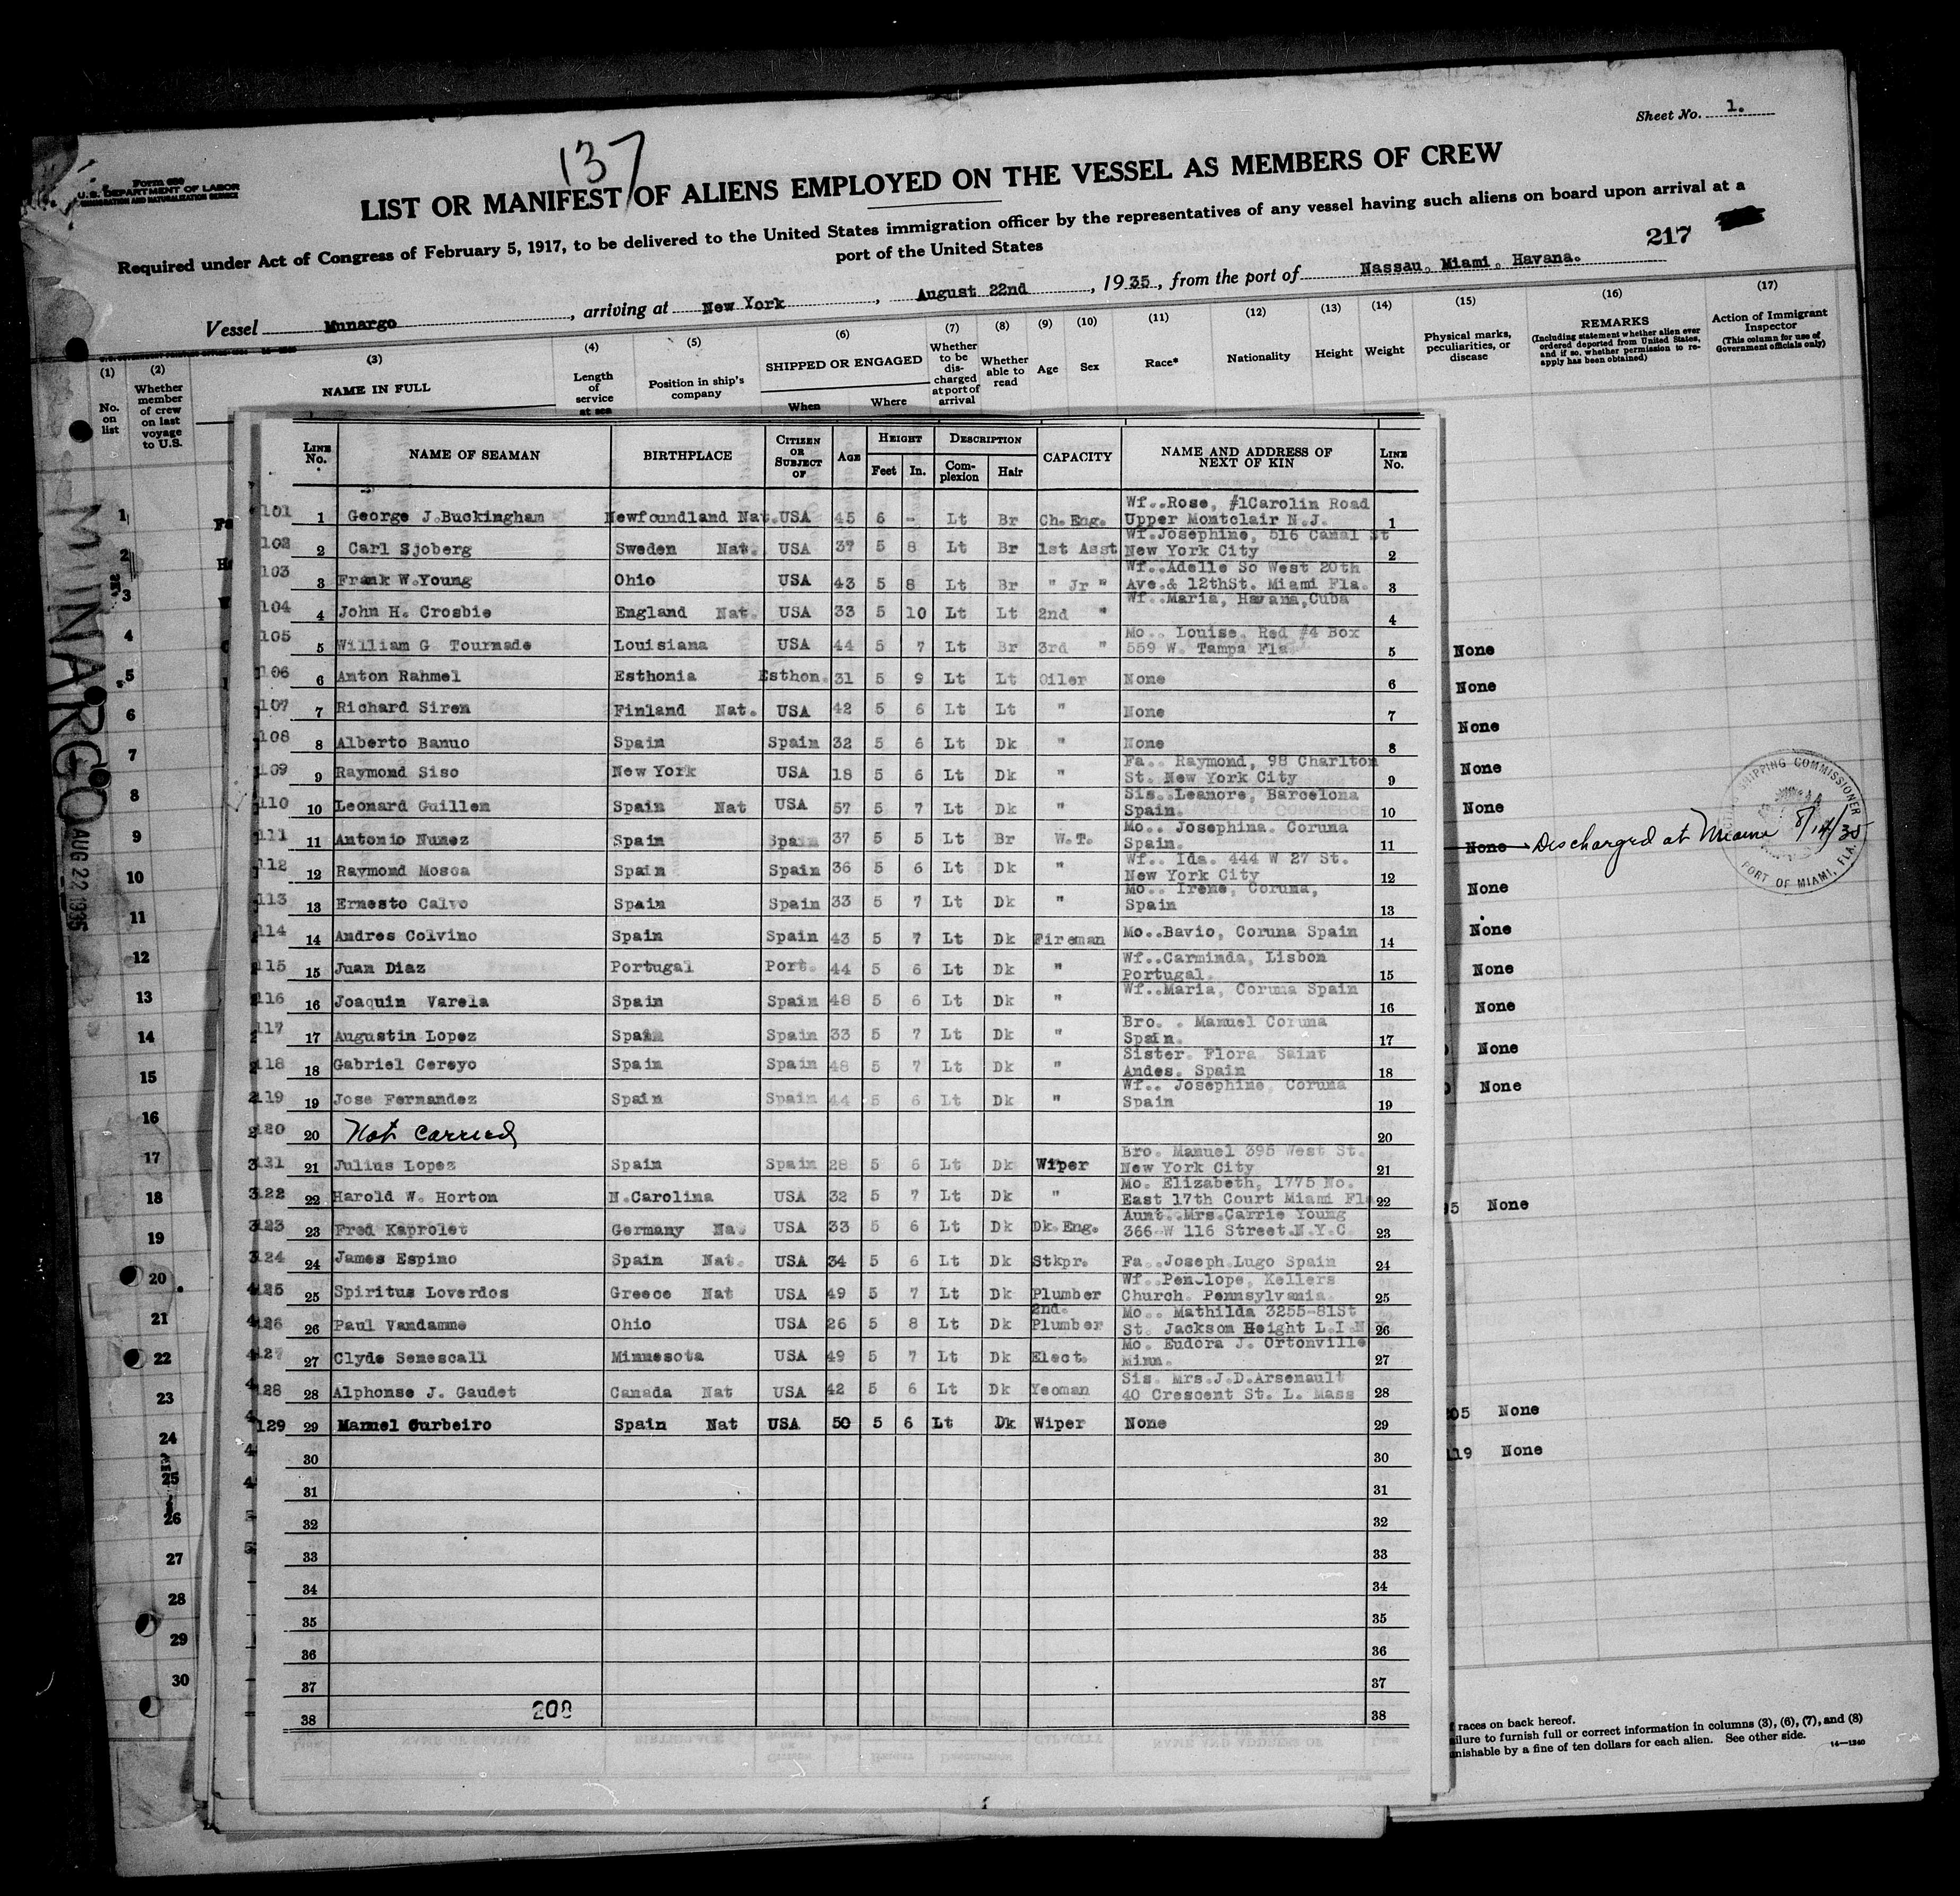 Sheet No. 1.
137
Form 680
U.S. DEPARTMENT OF LABOR
IMMIGRATION AND NATURALIZATION SERVICE
LIST OR MANIFEST OF ALIENS EMPLOYED ON THE VESSEL AS MEMBERS OF CREW
Required under Act of Congress of February 5, 1917, to be delivered to the United States immigration officer by the representatives of any vessel having such aliens on board upon arrival at a
port of the United States
217
Vessel Munargo, arriving at New York, August 22nd, 1935, from the port of Nassau. Miami. Havana.
(1) No. on list
(2) Whether member of crew on last voyage to U.S.
(3) NAME IN FULL
(4) Length of service at sea
(5) Position in ship's company
(6) SHIPPED OR ENGAGED When Where
(7) Whether to be discharged at port of arrival
(8) Whether able to read
(9) Age
(10) Sex
(11) Race*
(12) Nationality
(13) Height
(14) Weight
(15) Physical marks, peculiarities, or disease
(16) REMARKS (Including statement whether alien ever ordered deported from United States, and if so, whether permission to re-apply has been obtained)
(17) Action of Immigrant Inspector (This column for use of Government officials only)
MUNARGO AUG 22 1935
LINE No. NAME OF SEAMAN BIRTHPLACE CITIZEN OR SUBJECT OF AGE HEIGHT Feet In. DESCRIPTION Com-plexion Hair CAPACITY NAME AND ADDRESS OF NEXT OF KIN LINE No.
101 1 George J.Buckingham Newfoundland Nat. USA 45 6 - Lt Br Ch.Eng. Wf..Rose, #1Carolin Road Upper Montclair N.J. 1
102 2 Carl Sjoberg Sweden Nat. USA 37 5 8 Lt Br 1st Asst Wf.Josephine, 516 Canal St New York City 2
103 3 Frank W.Young Ohio USA 43 5 8 Lt Br " Jr " Wf..Adelle So West 20th Ave.& 12thSt. Miami Fla. 3
104 4 John H. Crosbie England Nat. USA 33 5 10 Lt Lt 2nd " Wf..Maria, Havana,Cuba 4
105 5 William G Tourmade Louisiana USA 44 5 7 Lt Br 3rd " Mo.. Louise. Red #4 Box 559 W. Tampa Fla. 5
106 6 Anton Rahmel Esthonia Esthon. 31 5 9 Lt Lt Oiler None 6
107 7 Richard Siren Finland Nat. USA 42 5 6 Lt Lt " None 7
108 8 Alberto Banuo Spain Spain 32 5 6 Lt Dk " None 8
109 9 Raymond Siso New York USA 18 5 6 Lt Dk " Fa.. Raymond, 98 Charlton St. New York City 9
110 10 Leonard Guillem Spain Nat USA 57 5 7 Lt Dk " Sis..Leanore, Barcelona Spain. 10
111 11 Antonio Nunez Spain Spain 37 5 5 Lt Br W.T. Mo.. Josephina. Coruna Spain. 11
112 12 Raymond Mosca Spain Spain 36 5 6 Lt Dk " Wf.. Ida. 444 W 27 St. New York City 12
113 13 Ernesto Calvo Spain Spain 33 5 7 Lt Dk " Mo.. Irene, Coruna, Spain 13
114 14 Andres Colvino Spain Spain 43 5 7 Lt Dk Fireman Mo..Bavio, Coruna Spain 14
115 15 Juan Diaz Portugal Port. 44 5 6 Lt Dk " Wf..Carminda, Lisbon Portugal. 15
116 16 Joaquin Varela Spain Spain 48 5 6 Lt Dk " Wf..Maria, Coruna Spain 16
117 17 Augustin Lopez Spain Spain 33 5 7 Lt Dk " Bro. . Manuel Coruna Spain. 17
118 18 Gabriel Cereyo Spain Spain 48 5 7 Lt Dk " Sister. Flora. Saint Andes. Spain 18
119 19 Jose Fernandez Spain Spain 44 5 6 Lt Dk " Wf.. Josephine, Coruna Spain 19
120 20 Not Carried 20
121 21 Julius Lopez Spain Spain 28 5 6 Lt Dk Wiper Bro. Manuel 395 West St. New York City 21
122 22 Harold W. Horton N.Carolina USA 32 5 7 Lt Dk " Mo. Elizabeth, 1775 No. East 17th Court Miami Fl 22
123 23 Fred Kaprolet Germany Na. USA 33 5 6 Lt Dk Dk.Eng. Aunt..Mrs.Carrie Young 366-W 116 Street.N.Y.C. 23
124 24 James Espino Spain Nat. USA 34 5 6 Lt Dk Stkpr. Fa..Joseph.Lugo Spain 24
125 25 Spiritus Loverdos Greece Nat USA 49 5 7 Lt Dk Plumber Wf..Penelope, Kellers Church. Pennsylvania. 25
126 26 Paul Vandamme Ohio USA 26 5 8 Lt Dk 2nd. Plumber Mo.. Mathilda 3255-81St St. Jackson Height L.I.N 26
127 27 Clyde Senescall Minnesota USA 49 5 7 Lt Dk Elect. Mo. Eudora J. Ortonville Minn. 27
128 28 Alphonse J. Gaudet Canada Nat USA 42 5 6 Lt Dk Yeoman Sis. Mrs.J.D.Arsenault 40 Crescent St. L. Mass 28
129 29 Manuel Curbeiro Spain Nat USA 50 5 6 Lt Dk Wiper None 29
30 30
31 31
32 32
33 33
34 34
35 35
36 36
37 37
208
38 38
1
2
3
4
5
6
7
8
9
10
11
12
13
14
15
16
17
18
19
20
21
22
23
24
25
26
27
28
29
30
None
None
None
None
None
None Discharged at Miami 8/14/35
SHIPPING COMMISSIONER PORT OF MIAMI, FLA.
None
None
None
None
None
None
None
None
None
races on back hereof.
failure to furnish full or correct information in columns (3), (6), (7), and (8)
punishable by a fine of ten dollars for each alien. See other side.
14—1240